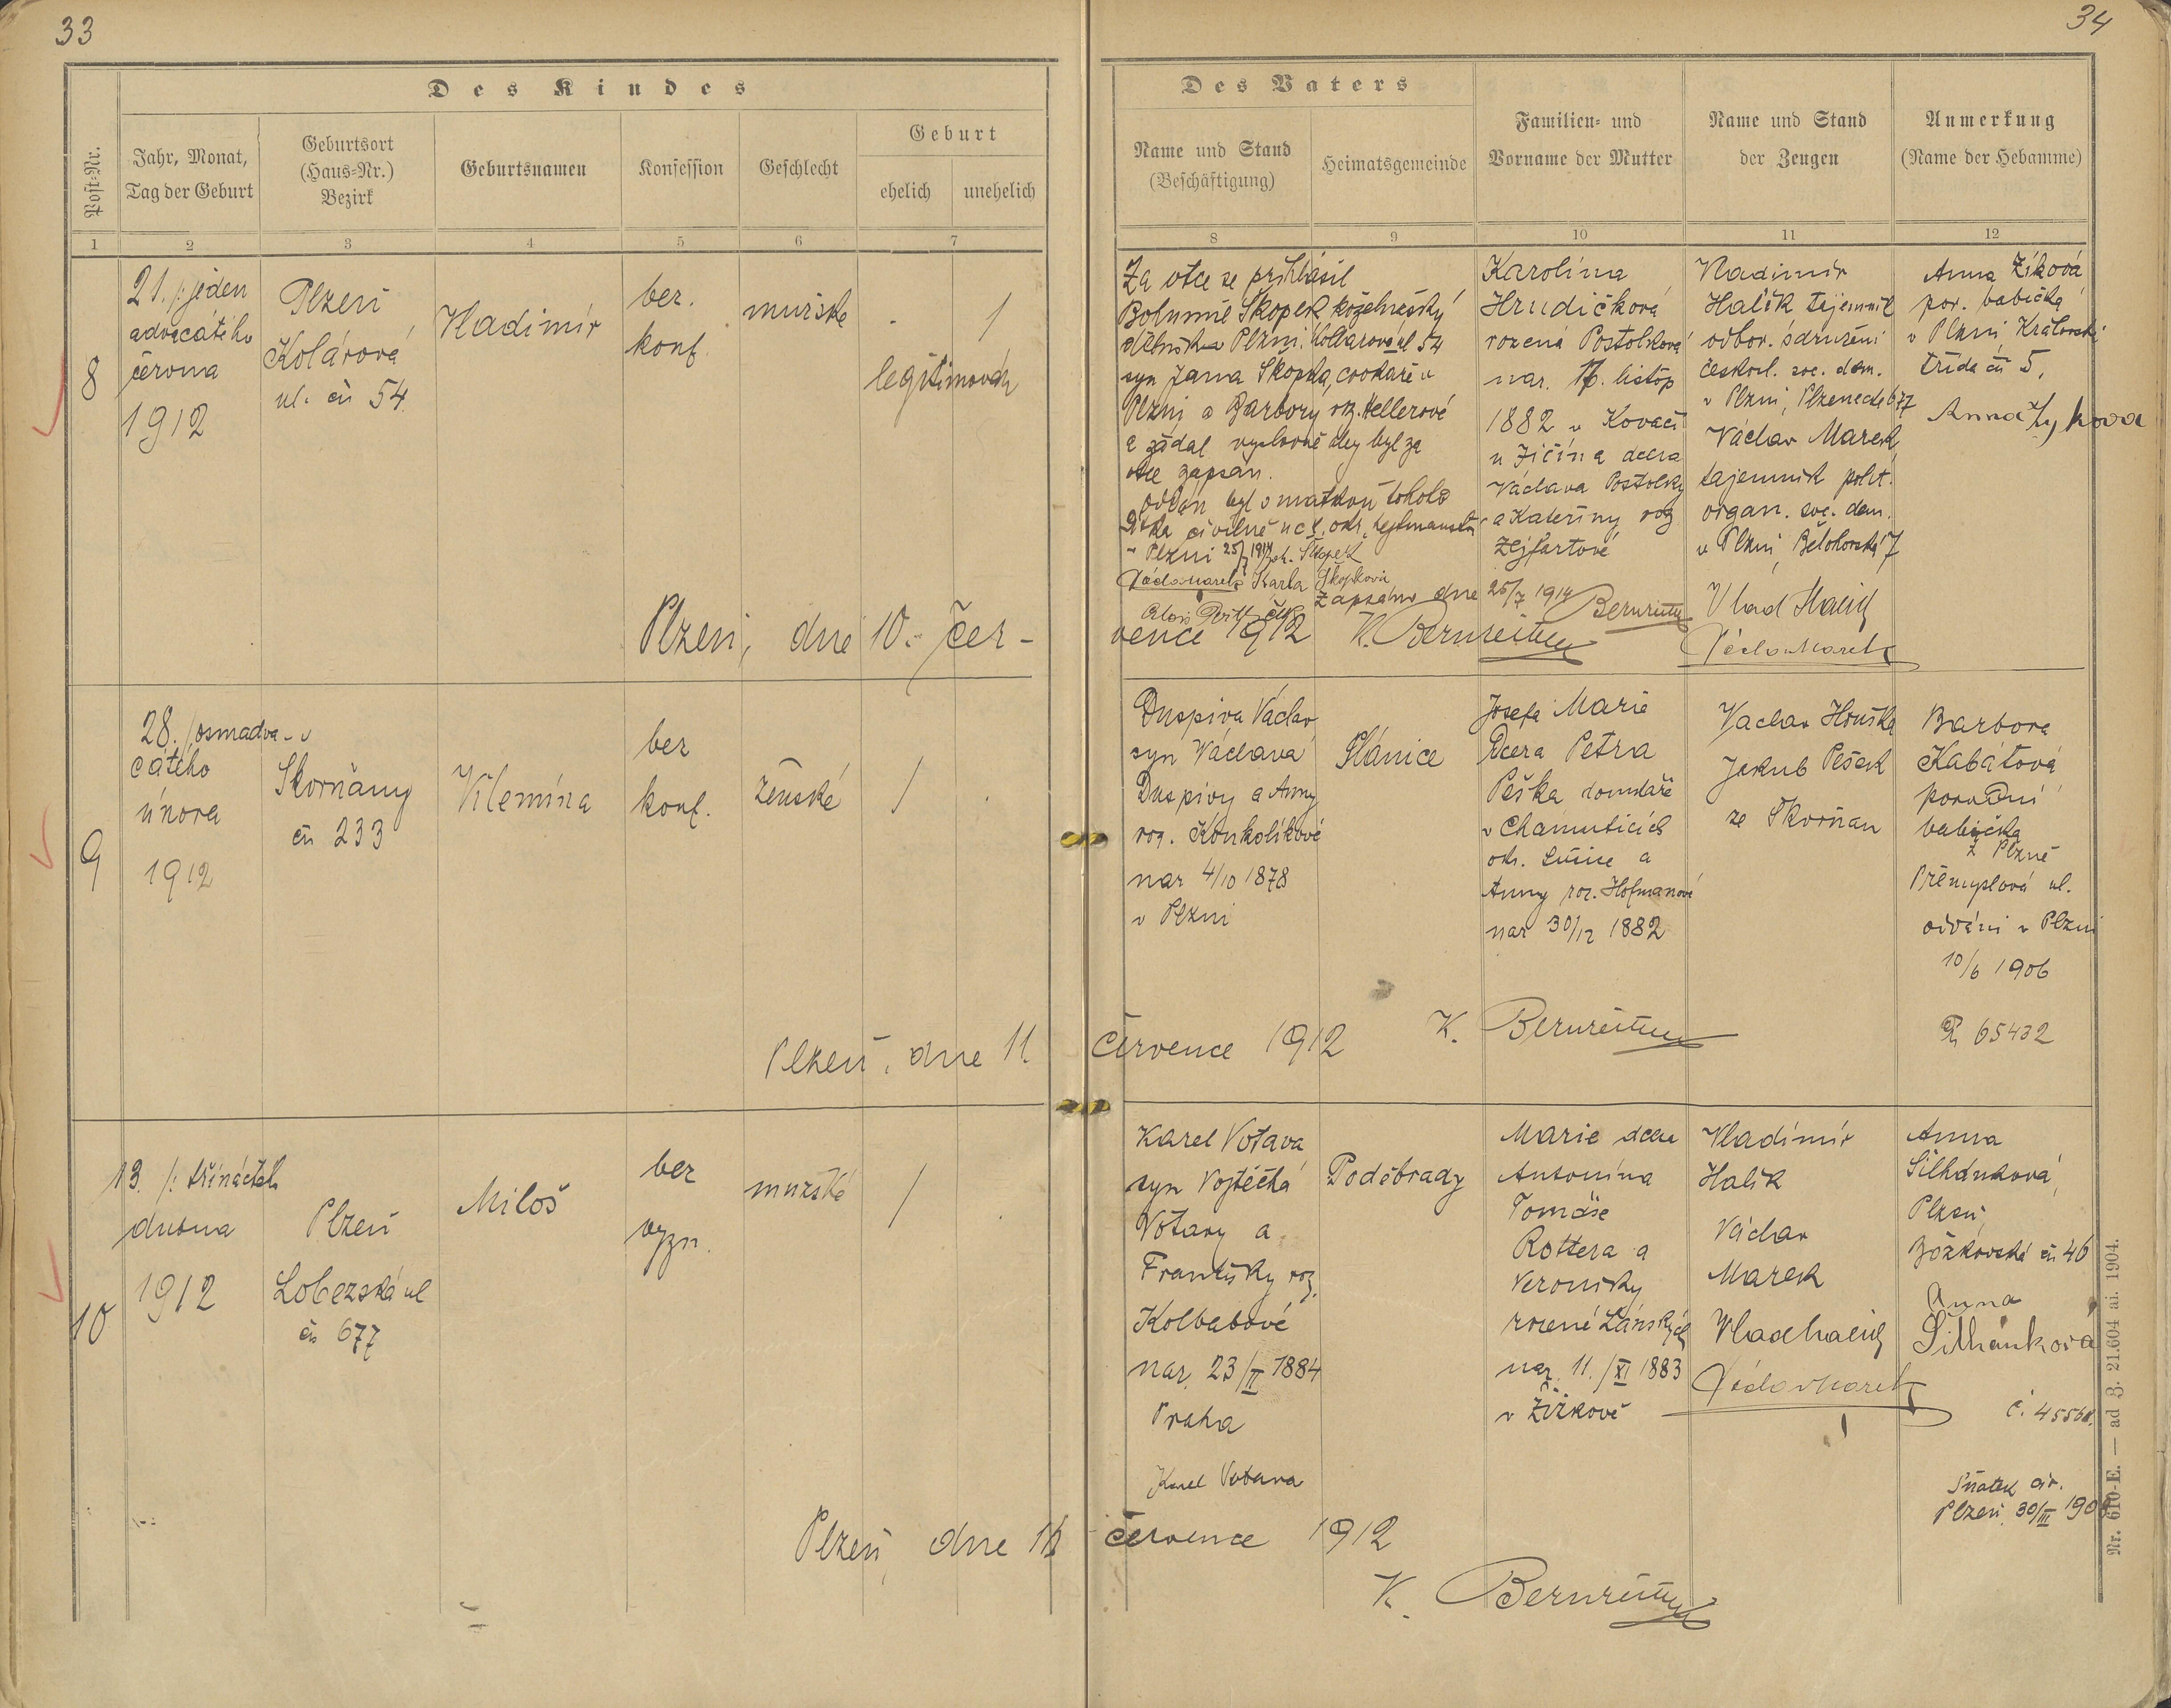 33
34
Des Kindes
Post-Nr.
Jahr, Monat,
Tag der Geburt
Geburtsort
(Haus-Nr.)
Bezirk
Geburtsnamen
Konfession
Geschlecht
Geburt
ehelich
unehelich
Des Vaters
Name und Stand
(Beschäftigung)
Heimatsgemeinde
Familien- und
Vorname der Mutter
Name und Stand
der Zeugen
Anmerkung
(Name der Hebamme)
1
2
3
4
5
6
7
8
9
10
11
12
8
21. /: jeden
advacátého
června
1912
Plzeň
Kolárova
ul. čís 54.
Vladimír
ber.
konf.
mužské
1
legitimován
Za otce se přihlásil
Bohumil Škopek koželnežský
dělník v Plzni, Kollarova ul 54
syn Jana Škopka, cvokaře v
Plzni a Barbory roz. Hellerové
a žádal výslovně aby byl za
otce zapsán.
oddán byl s matkou tohoto
dítka civilně u c.k. okr. hejtmanství
v Plzni 25/7 1914 Boh. Škopek
Václav Marek Karla Škopková
zapsáno dne 25/7 1914 Bernreitter
Karolina
Hrudičková
rozená Postolková
nar. 16. listop
1882 v Kovači
u Jičína dcera
Václava Postolky
a Kateřiny roz
Zejfartové
Vladimír
Halík tajemník
odbor. sdružení
českosl. soc. dem.
v Plzni, Plzenecká 677
Václav Marek,
tajemník polit.
organ. soc. dem.
v Plzni, Bělohorská 7
Vlad Halík
Václav Marek
Anna Žíková
por. babička
v Plzni, Královská
třída čís 5.
Anna Zykova
Plzeň, dne 10. čer-
vence 1912 K. Bernreitter
9
28. /osmadva-
cátého
února
1912
Skvrňany
čís 233
Vilemína
bez
konf.
ženské
/
Duspiva Václav
syn Václava
Duspivy a Anny
roz. Konkolíkové
nar 4/10 1878
v Plzni
Plánice
Josefa Marie
Dcera Petra
Peška domkáře
v Chamuticích
okr. Sušice a
Anny roz. Hofmanové
nar 30/12 1882
Vaclav Houška
Jakub Pešek
ze Skvrňan
Barbora
Kabátová
porodní
babička
z Plzně
Přemyslová ul.
oddáni v Plzni
10/6 1906
65432
Plzeň, dne 11.
července 1912 K. Bernreitter
10
13. /: třináctého
dubna
1912
Plzeň
Lobezská ul
čís 677
Miloš
bez
vyzn.
mužské
/
Karel Votava
syn Vojtěcha
Votavy a
Františky roz.
Kolbabové
nar. 23/II 1884
Praha
Karel Votava
Poděbrady
Marie dcera
Antonína
Tomáše
Rottera a
Veroniky
rozené Lánských
nar. 11./XI 1883
v Žižkově
Vladimír
Halík
Václav
Marek
Vlad Halík
Václav Marek
Anna
Šilhánková,
Plzeň,
Božkovská čís 46
Anna
Šilhánková
č. 45568.
Sňatek civ.
Plzeň, 30/III 190
Plzeň, dne 11
července 1912
K. Bernreitter
Nr. 610-E. — ad Z. 21.604 ai. 1904.